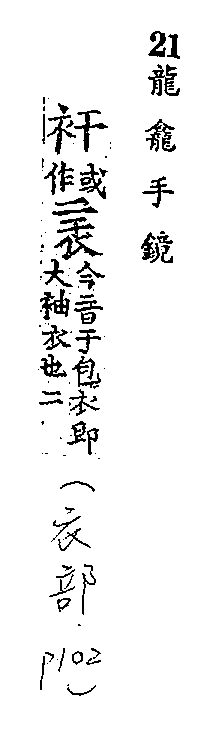 21 龍龕手鏡
衦或作今音于包衣即
大袖衣也二
(衣部.p102)